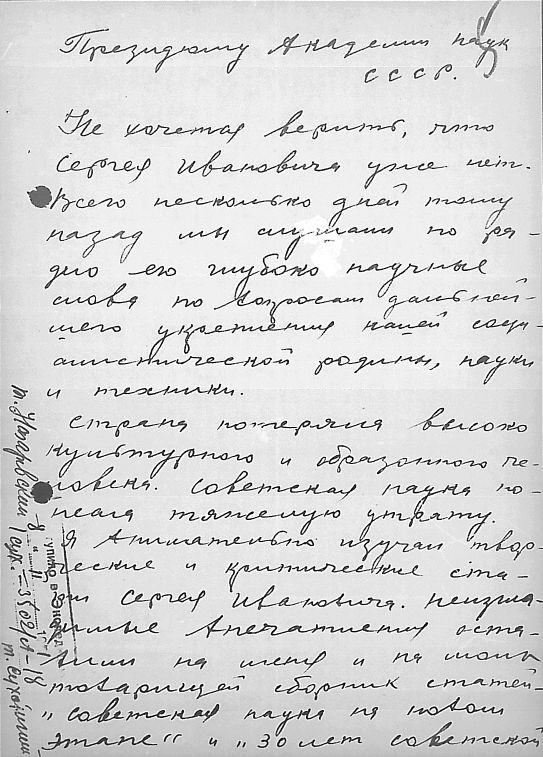 Президиуму Академии наук
СССР.
Не хочется верить, что
Сергея Ивановича уже нет.
Всего несколько дней тому
назад мы слушали по ра-
дио его глубоко научные
слова по вопросам дальней-
шего укрепления нашей соци-
алистической родины, науки
и техники.
Страна потеряла высоко
культурного и образонного че-
ловека. Советская наука по-
несла тяжелую утрату.
Я внимательно изучал твор-
ческие и критические ста-
ти Сергея Ивановича. Неизгла-
димые впечатления оста-
вили на меня и на моих
товарищей сборник статей-
„Советская наука на новом
этапе“ и „30 лет советской